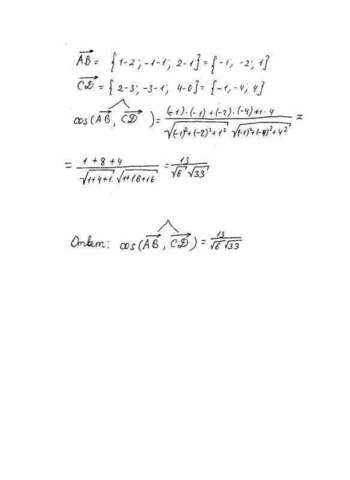 AB = {1-2; -1-1; 2-1} = {-1, -2; 1}
CD = {2-3; -3-1; 4-0} = {-1, -4, 4}
cos(AB, CD) = (-1)·(-1)+(-2)·(-4)+1·4 / √(-1)²+(-2)²+1² √(-1)²+(-4)²+4² =
= 1+8+4 / √1+4+1 √1+16+16 = 13 / √6 √33
Ответ: cos(AB, CD) = 13 / √6 √33